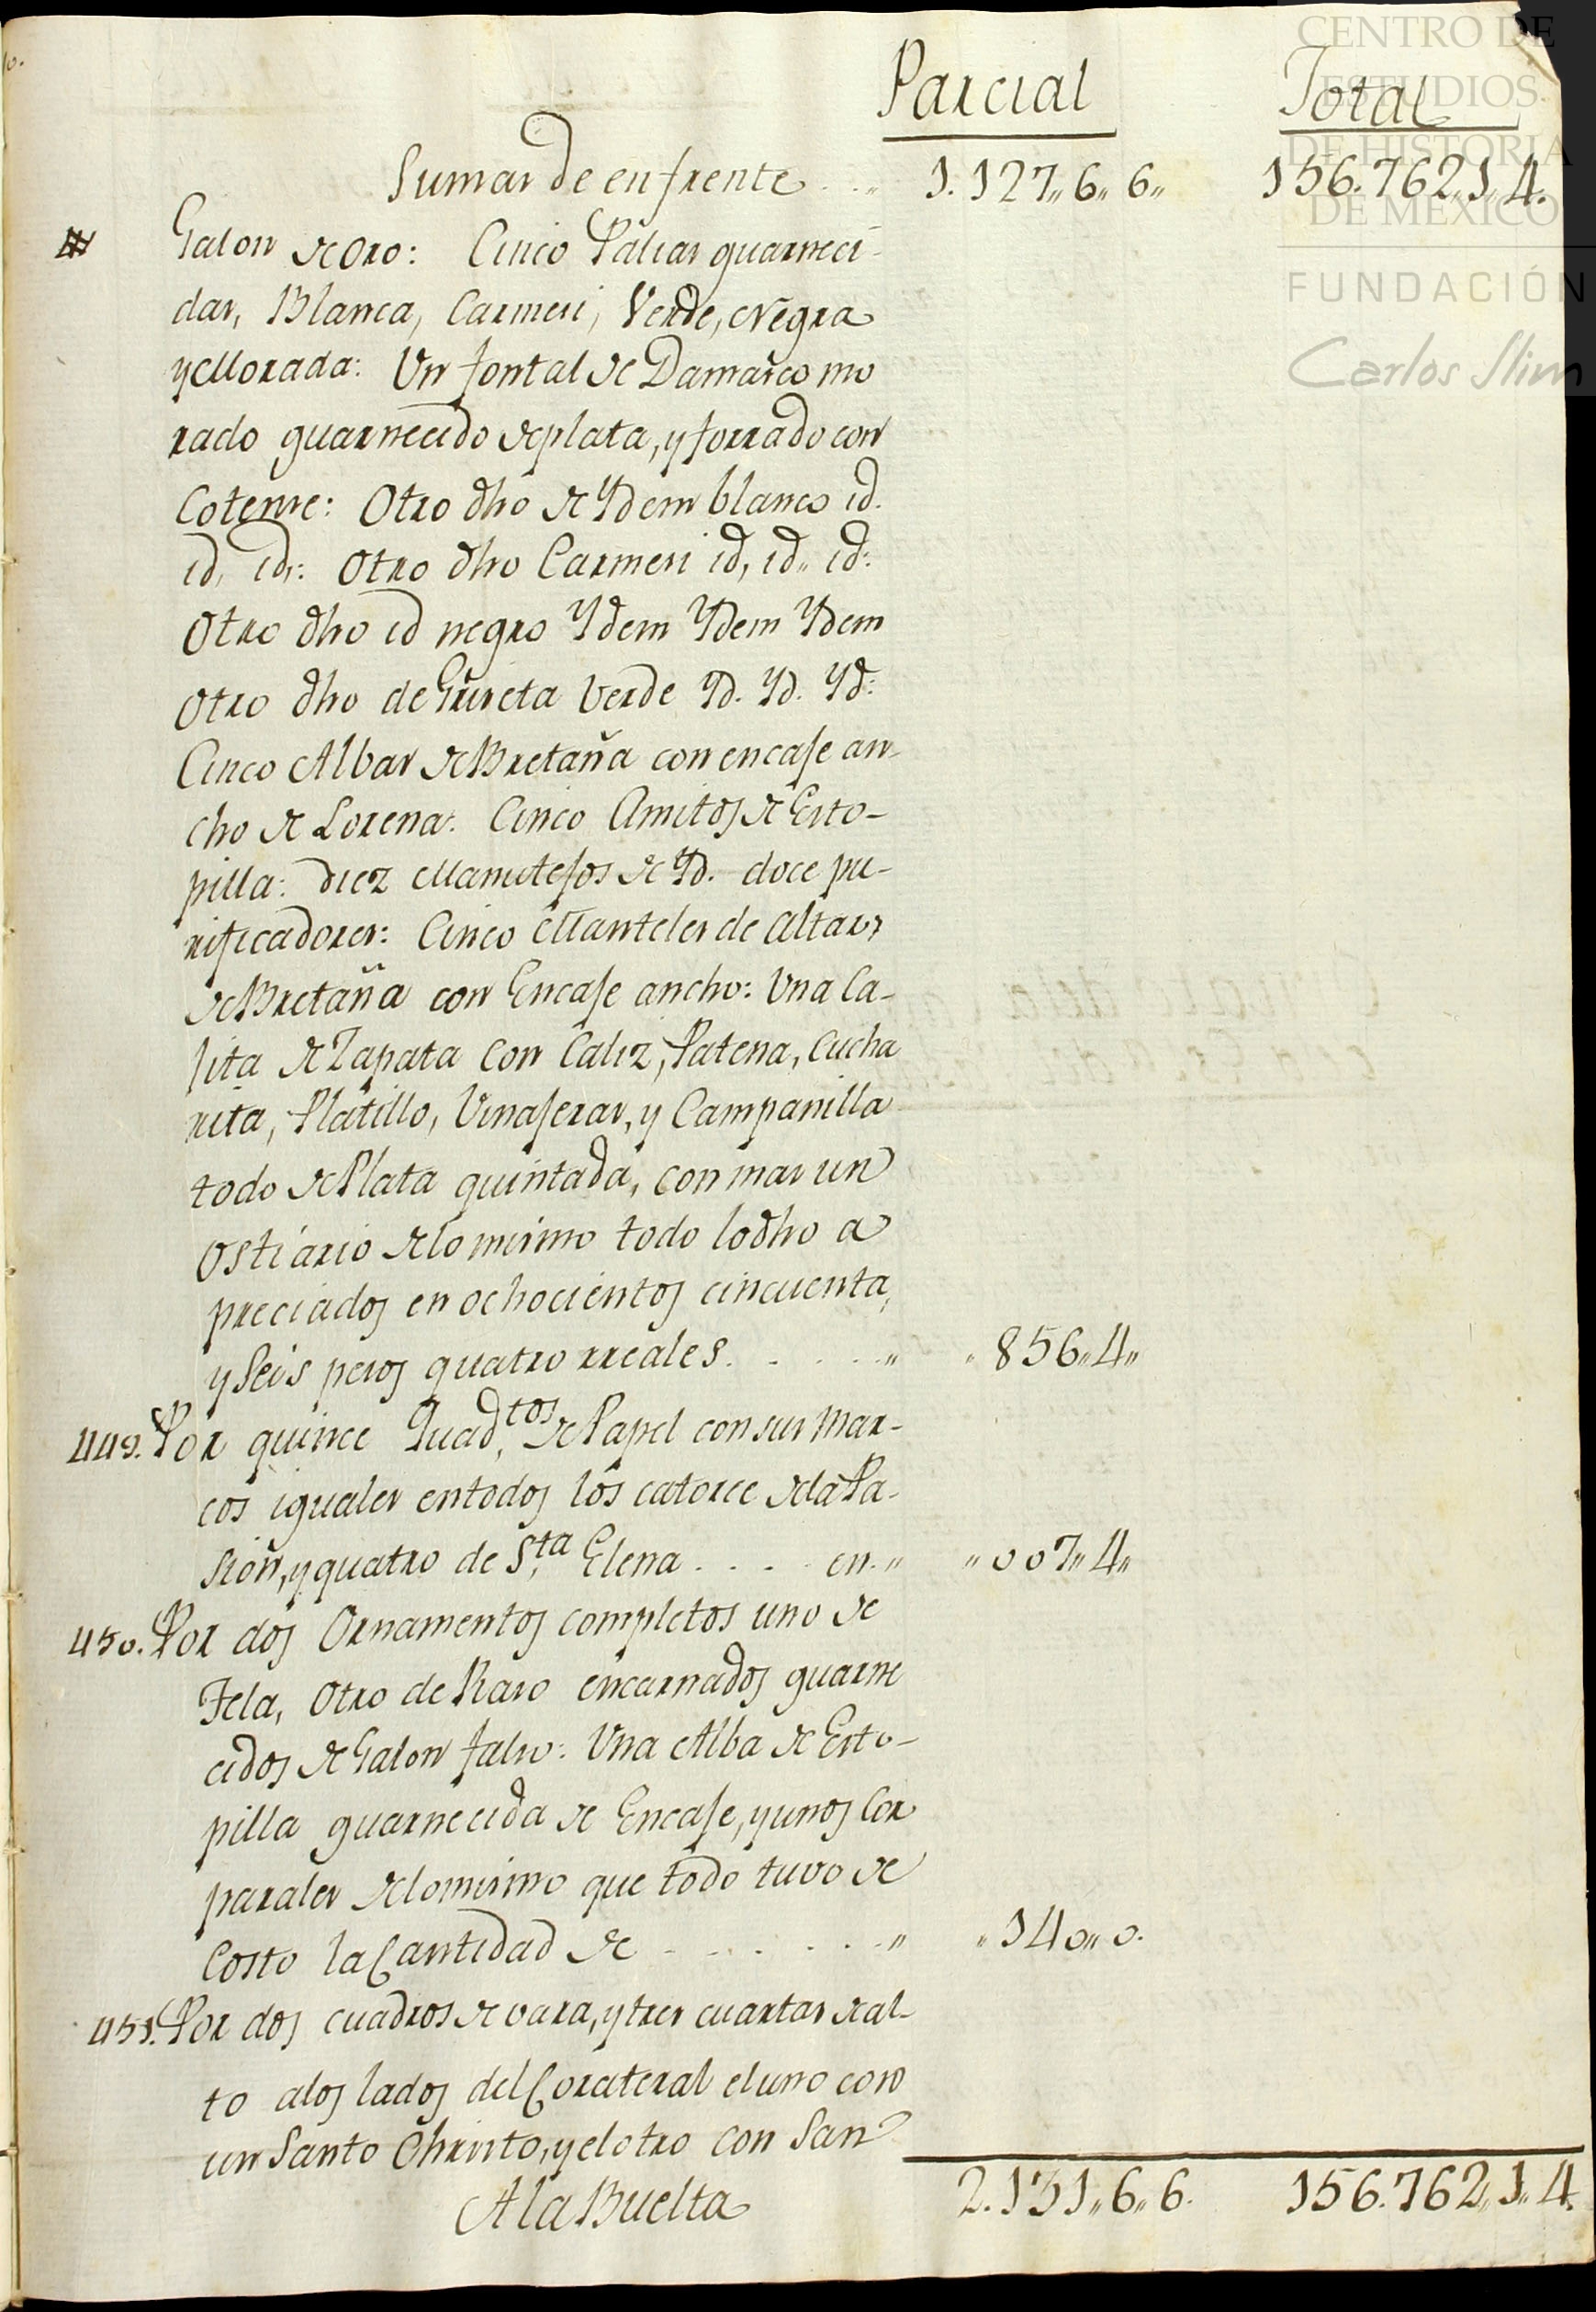 Parcial Total
Sumas de enfrente . . " 1.127,,6,,6,, 156.762,,1,,4.
Galon de Oro: Cinco Palias guarneci-
das, Blanca, Carmesi, Verde, Negra
y Morada: Un fontal de Damasco mo
rado guarnecido de plata, y forrado con
Cotense: Otro dho de Ydem blanco id.
id, id,: Otro dho Carmesi id, id,, id:
Otro dho id negro Ydem Ydem Ydem
Otro dho de Griseta Verde Yd. Yd. Yd:
Cinco Albas de Bretaña con encaje an-
cho de Lorena: Cinco Amitos de Esto-
pilla: diez Manutejos de Yd. doce pu-
rificadores: Cinco Manteles de Altar,
de Bretaña con Encaje ancho: Una Ca-
jita de Zapata con Caliz, Patena, Cucha
rita, Platillo, Vinajeras, y Campanilla
todo de Plata quintada, con mas un
Ostiario de lo mismo todo lo dho a
preciados en ochocientos cincuenta,
y Seis pesos quatro rreales. . . . . " " 856,,4,,
449. Por quince Quad.tos de Papel con sus Mar-
cos iguales en todos los catorce de la Pa-
sion, y quatro de S.ta Elena . . . . en. " " 007,,4,,
450. Por dos Ornamentos completos uno de
Tela, Otro de Raso encarnados guarne
cidos de Galon falso: Una Alba de Esto-
pilla guarnecida de Encaje, y unos Cor
porales de lo mismo que todo tuvo de
Costo la Cantidad de . . . . . . " " 140,,0.
451. Por dos cuadros de vara, y tres cuartas de al-
to a los lados del Corateral el uno con
un Santo Christo, y el otro con San
A la Buelta 2.131,,6,,6. 156.762,,1,,4.
CENTRO DE
ESTUDIOS
DE HISTORIA
DE MÉXICO
FUNDACIÓN
Carlos Slim